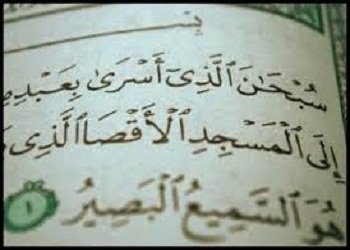 سُبْحَـٰنَ ٱلَّذِىٓ أَسْرَىٰ بِعَبْدِهِ
إِلَى ٱلْمَسْجِدِ ٱلْأَقْصَا ٱلَّذِى
هُوَ ٱلسَّمِيعُ ٱلْبَصِيرُ ١